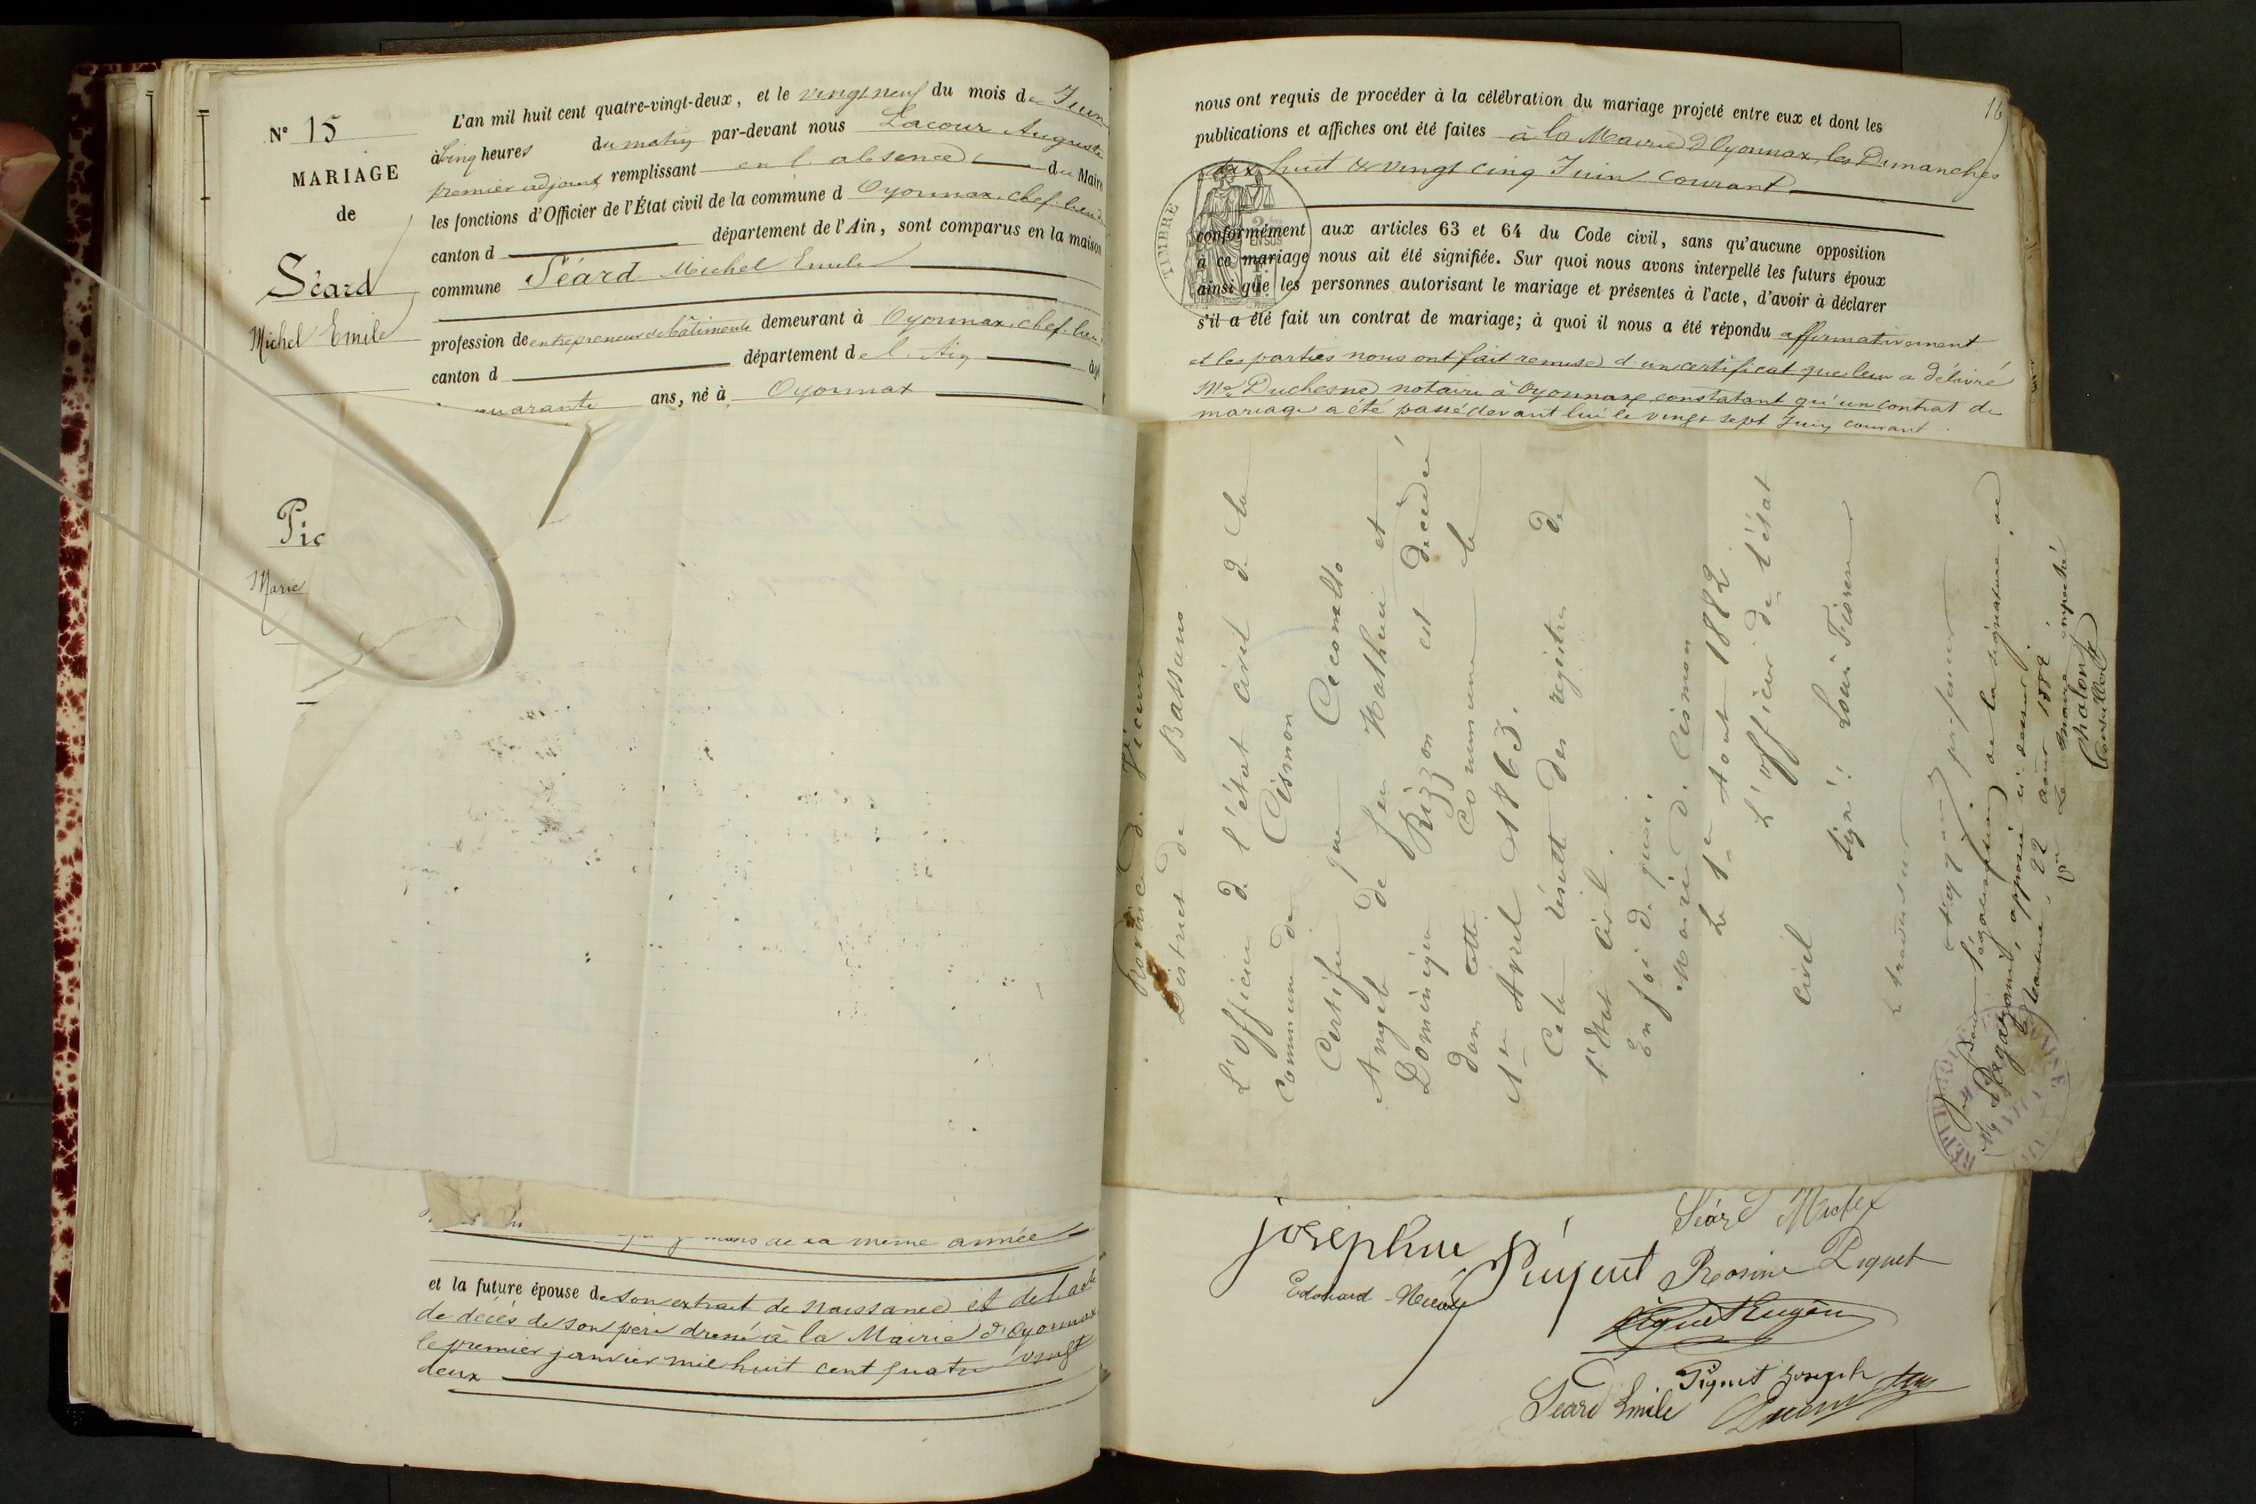 N° 15
MARIAGE
de
Séard
Michel Emile
Pic
Marie
L'an mil huit cent quatre-vingt-deux, et le vingt neuf du mois de Juin
à Cinq heures du matin par-devant nous Lacour Auguste
premier adjoint remplissant en l'absence du Maire
les fonctions d'Officier de l'État civil de la commune d Oyonnax, chef-lieu de
canton d département de l'Ain, sont comparus en la maison
commune Séard Michel Emile
profession de entrepreneur de bâtiments demeurant à Oyonnax, chef-lieu
canton d département de l'Ain âgé
quarante ans, né à Oyonnax
mars de la même année
et la future épouse de son extrait de naissance et de l'acte
de décès de son père dressé à la Mairie d'Oyonnax
le premier janvier mil huit cent quatre vingt
deux
16
nous ont requis de procéder à la célébration du mariage projeté entre eux et dont les
publications et affiches ont été faites à la Mairie d'Oyonnax, les Dimanches
dix huit & vingt cinq Juin courant
TIMBRE
2/10 EN SUS
conformément aux articles 63 et 64 du Code civil, sans qu'aucune opposition
à ce mariage nous ait été signifiée. Sur quoi nous avons interpellé les futurs époux
ainsi que les personnes autorisant le mariage et présentes à l'acte, d'avoir à déclarer
s'il a été fait un contrat de mariage; à quoi il nous a été répondu affirmativement
et les parties nous ont fait remise d'un certificat que leur a délivré
Me Duchesne notaire à Oyonnax constatant qu'un contrat de
mariage a été passé devant lui le vingt sept Juin courant.
Province de Vicence
District de Bassano
L'officier de l'état civil de la
Commune de Cismon
Certifie que Ceccomello
Angelo de feu Mathieu et
Dominique Rizzon est décédé
dans cette Commune le
1er Avril 1863.
Cela résulte des registres de
l'état civil.
En foi de quoi:
Mairie de Cismon
Le 1er Aout 1882
L'officier de l'état
civil
Signé: Louis Fiorese
Le traducteur
professeur
Vu pour légalisation de la signature de
Mr apposée ci dessus.
Nantua, 22 aout 1882.
Pr Le maire empêché
Chalon
Conseiller
Séard Michel
joséphine Piquet
Rosine Piquet
Edouard
Piquet Eugène
Piquet Joseph
Séard Emile